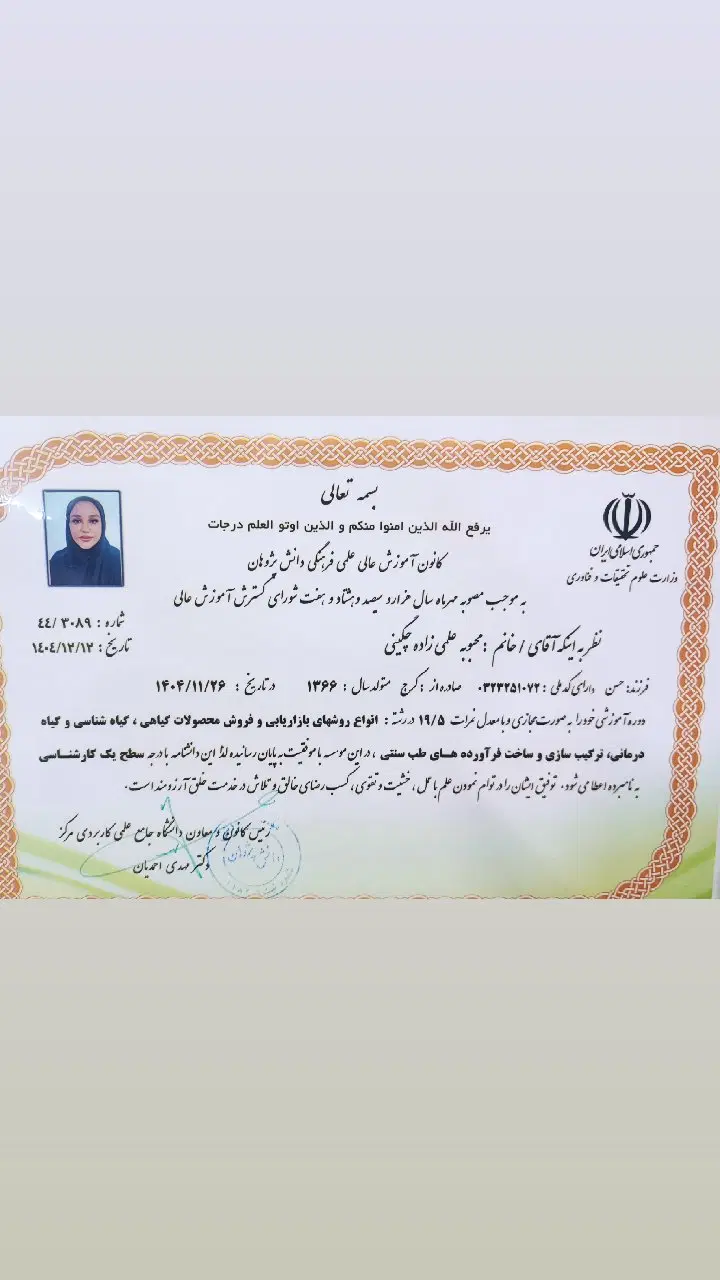 بسمه تعالی
یرفع الله الذین امنوا منکم و الذین اوتو العلم درجات
جمهوری اسلامی ایران
وزارت علوم تحقیقات و فناوری
کانون آموزش عالی علمی فرهنگی دانش پژوهان
به موجب مصوبه مهرماه سال هزار و سیصد و هشتاد و هفت شورای گسترش آموزش عالی
شماره : ۳۰۸۹ /٤٤
تاریخ : ۱٤۰٤/۱۲/۱۲
نظر به اینکه آقای / خانم : محبوبه علمی زاده چگینی
فرزند: حسن دارای کد ملی : ۰۳۲۳۲۵۱۰۷۲ صادره از : کرج متولد سال : ۱۳۶۶ در تاریخ : ۱۴۰۴/۱۱/۲۶
دوره آموزشی خود را به صورت مجازی و با معدل نمرات ۱۹/۵ در رشته : انواع روشهای بازاریابی و فروش محصولات گیاهی ، گیاه شناسی و گیاه
درمانی، ترکیب سازی و ساخت فرآورده های طب سنتی ، در این موسسه با موفقیت به پایان رسانیده لذا این دانشنامه با درجه سطح یک کارشناسی
به نامبرده اعطا می شود. توفیق ایشان را در توام نمودن علم با عمل ، خشیت و تقوی ، کسب رضای خالق و تلاش در خدمت خلق آرزومند است.
رئیس کانون و معاون دانشگاه جامع علمی کاربردی مرکز
دکتر مهدی احمدیان
دانش پژوهان